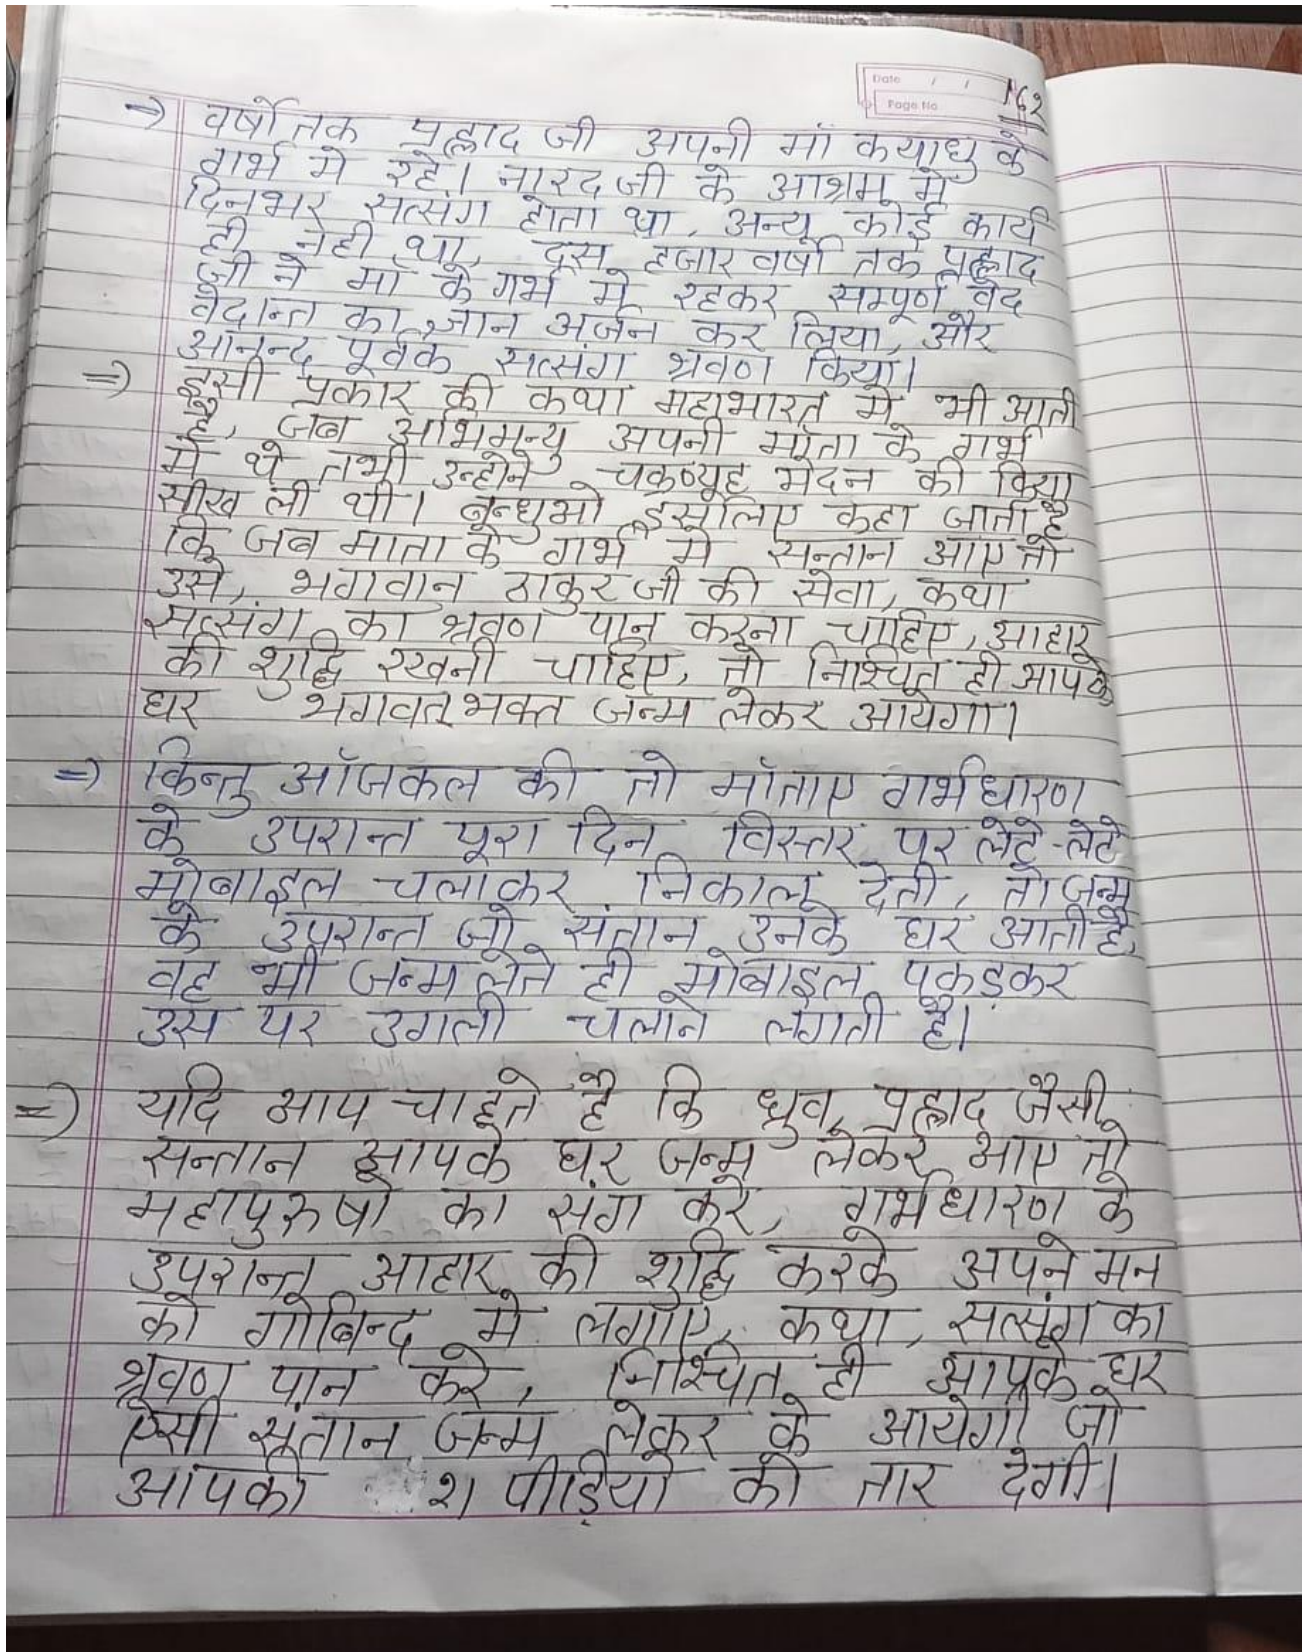 Date / /
Page No
162
→ वर्षो तक प्रह्लाद जी अपनी माँ कयाधु के
गर्भ मे रहे। नारद जी के आश्रम मे
दिनभर सत्संग होता था, अन्य कोई कार्य
ही नही था, दस हजार वर्षो तक प्रह्लाद
जी ने माँ के गर्भ मे रहकर सम्पूर्ण वेद
वेदान्त का ज्ञान अर्जन कर लिया, और
आनन्द पूर्वक सत्संग श्रवण किया।
⇒ इसी प्रकार की कथा महाभारत मे भी आती
है, जब अभिमन्यु अपनी माँता के गर्भ
मे थे तभी उन्होने चक्रव्यूह भेदन की क्रिया
सीख ली थी। बन्धुओ इसलिए कहा जाता है
कि जब माता के गर्भ मे सन्तान आए तो
उसे, भगवान ठाकुर जी की सेवा, कथा
सत्संग का श्रवण पान करना चाहिए, आहार
की शुद्धि रखनी चाहिए, तो निश्चित ही आपके
घर भगवत् भक्त जन्म लेकर आयेगा।
⇒ किन्तु ऑजकल की तो माँताए गर्भधारण
के उपरान्त पूरा दिन विस्तर पर लेटे-लेटे
मोबाइल चलाकर निकाल देती, तो जन्म
के उपरान्त जो संतान उनके घर आती है,
वह भी जन्म लेते ही मोबाइल पकड़कर
उस पर उगली चलाने लगती है।
⇒ यदि आप चाहते है कि ध्रुव, प्रह्लाद जैसी
सन्तान आपके घर जन्म लेकर आए तो
महापुरुषो का संग करे, गर्भधारण के
उपरान्त आहार की शुद्धि करके अपने मन
को गोबिन्द मे लगाँए, कथा, सत्संग का
श्रवण पान करे, निश्चित ही आपके घर
ऐसी संतान जन्म लेकर के आयेगी जो
आपकी २१ पीड़ियो को तार देगी।